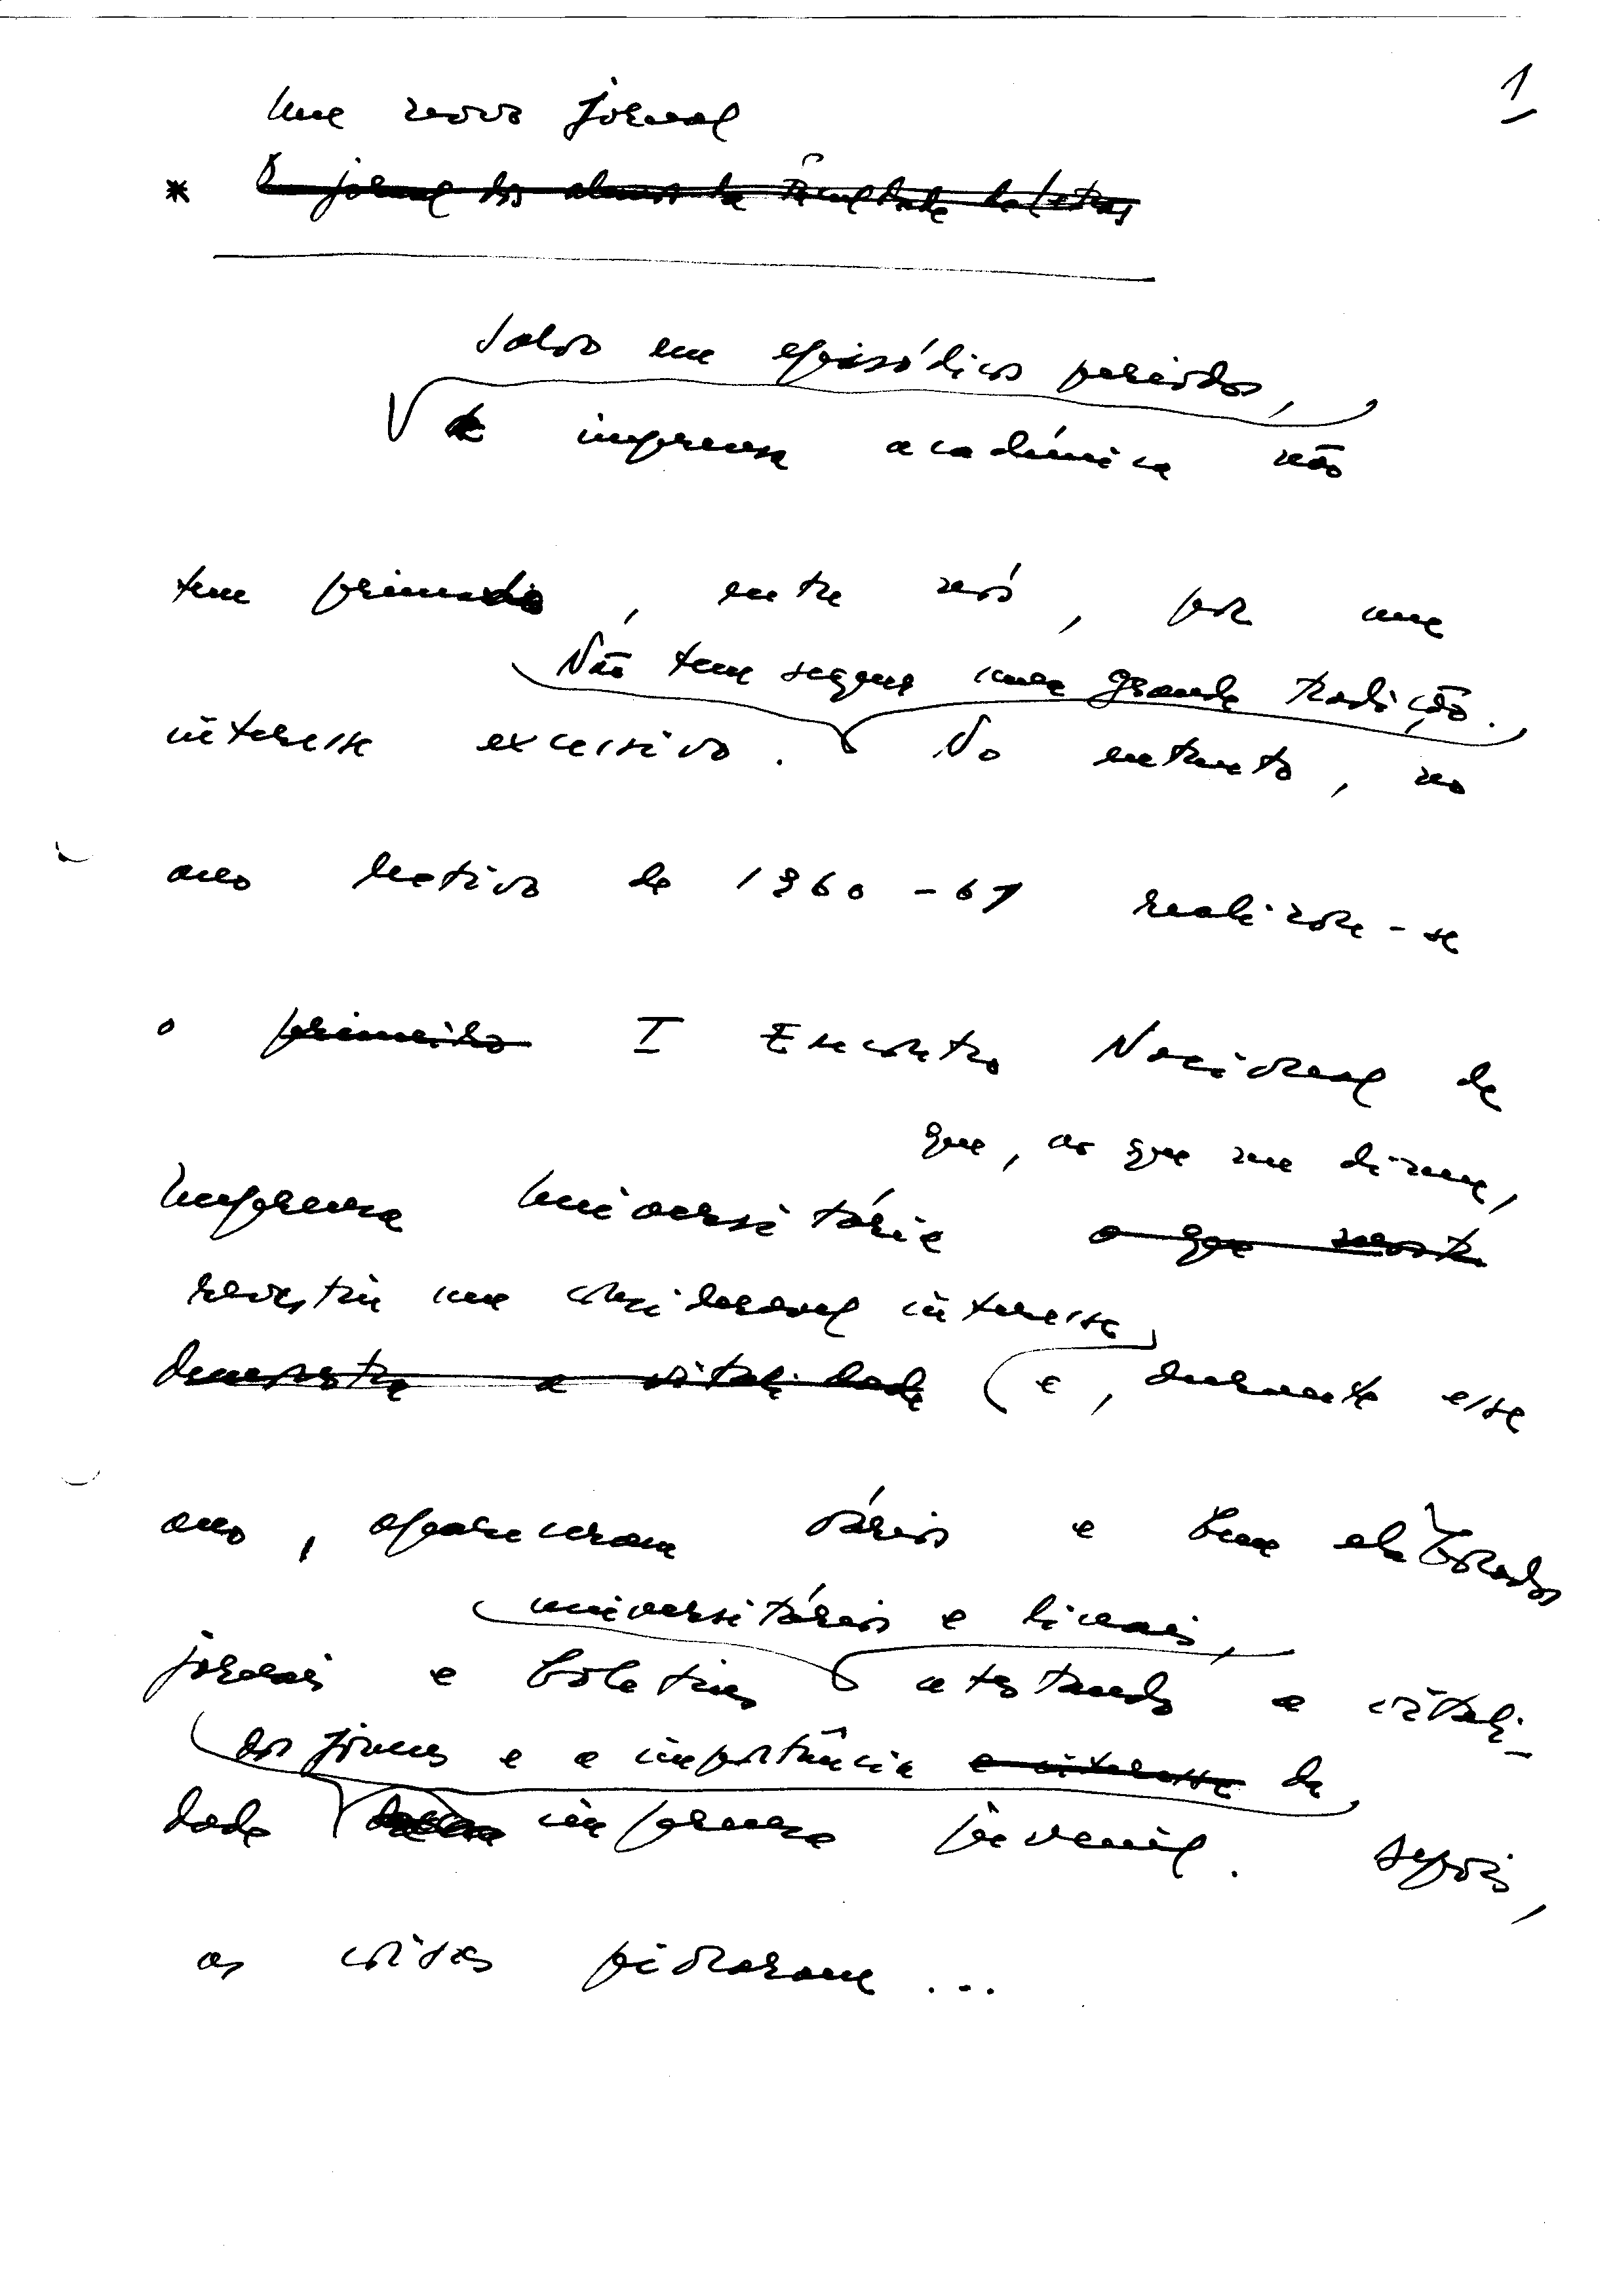 1
Um novo jornal
* O jornal dos alunos da Faculdade de Letras
Salvo em episódicos períodos,
a imprensa académica não
tem primado, entre nós, por um
Não tem sequer uma grande tradição.
interesse excessivo. No entanto, no
ano lectivo de 1960-61 realizou-se
o primeiro I Encontro Nacional de
que, ao que me dizem,
Imprensa Universitária o que mostra
revestiu um considerável interesse
demonstra a vitalidade e, durante esse
ano, apareceram vários e bem elaborados
universitários e liceais,
jornais e boletins atestando a vitali-
dos jovens e a importância e interesse da
dade imprensa juvenil. Depois,
as coisas pioraram...